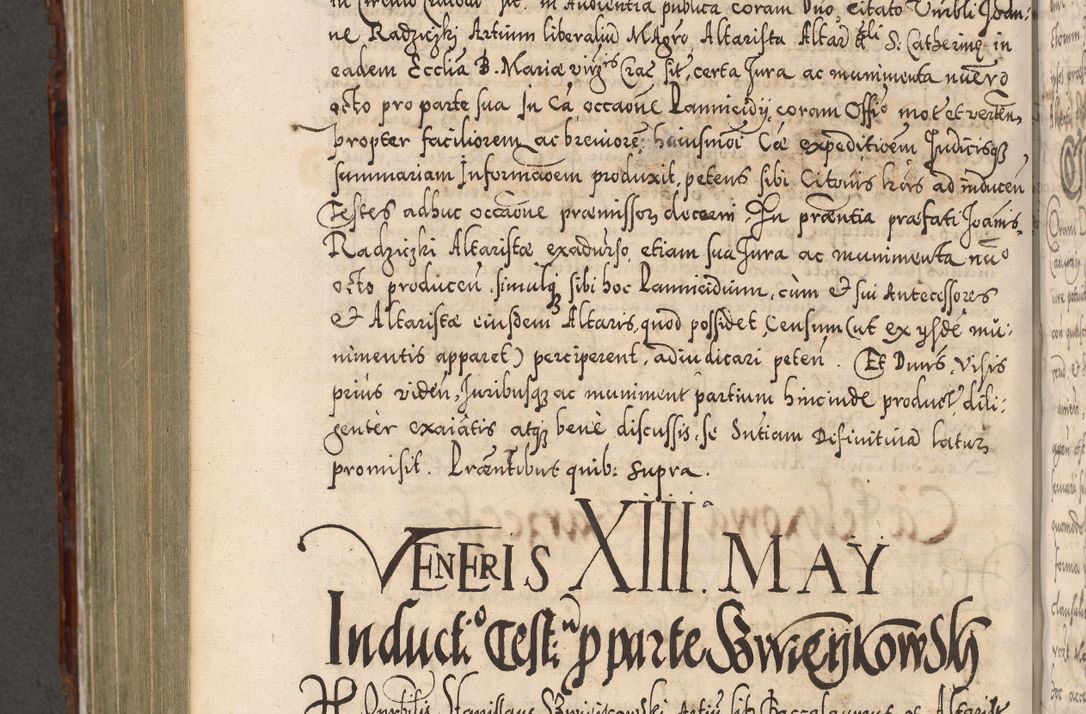 in Circulo Cracov: sit: in Audientia publica coram Dno, Citato Vnrbli Joan:
ne Radziczki Artium liberaliu Mgro Altarista Altar̃ Sli S: Catherinę in
eadem Ecclia B. Mariæ virgis Crac̃ sit, certa Jura ac munimenta nuero
octo pro parte sua In Cã occaone Lannicidy coram Offo mot̃ et verteñ,
propter faciliorem ac breviorē huiusmoi Cæ expeditioem Judicisq
summariam Informaoem produxit, petens sibi Citoriis lr̃as ad inducen̄
Testes adhuc occaone præmissor̃ decerni. In præntia præfati Joanis,
Radziczki Altaristæ exadurso, etiam sua Jura ac munimenta nuo
octo produceñ, simulq sibi hoc Lannicidium, cum & sui Antecessores
& Altaristæ eiusdem Altaris, quod possidet, Censum (ut ex ysdē mu:
nimentis apparet) perciperent, adiudicari peteñ. Et Dnus, Visis
prius videñ, Juribusq ac muniment̃ partium hincinde product̃ dili:
genter exaiatis atq bene discussis, se Sntiam Definitiuã laturͫ
promisit. Præntibus quib: supra.
VENERIS XIII.a MAY
Inducti:o Test:m p parte Szwieykowsky
Honorabilis Stanislaus Szwieikowski Artiū lib: Baccalaureus et Altarist̃